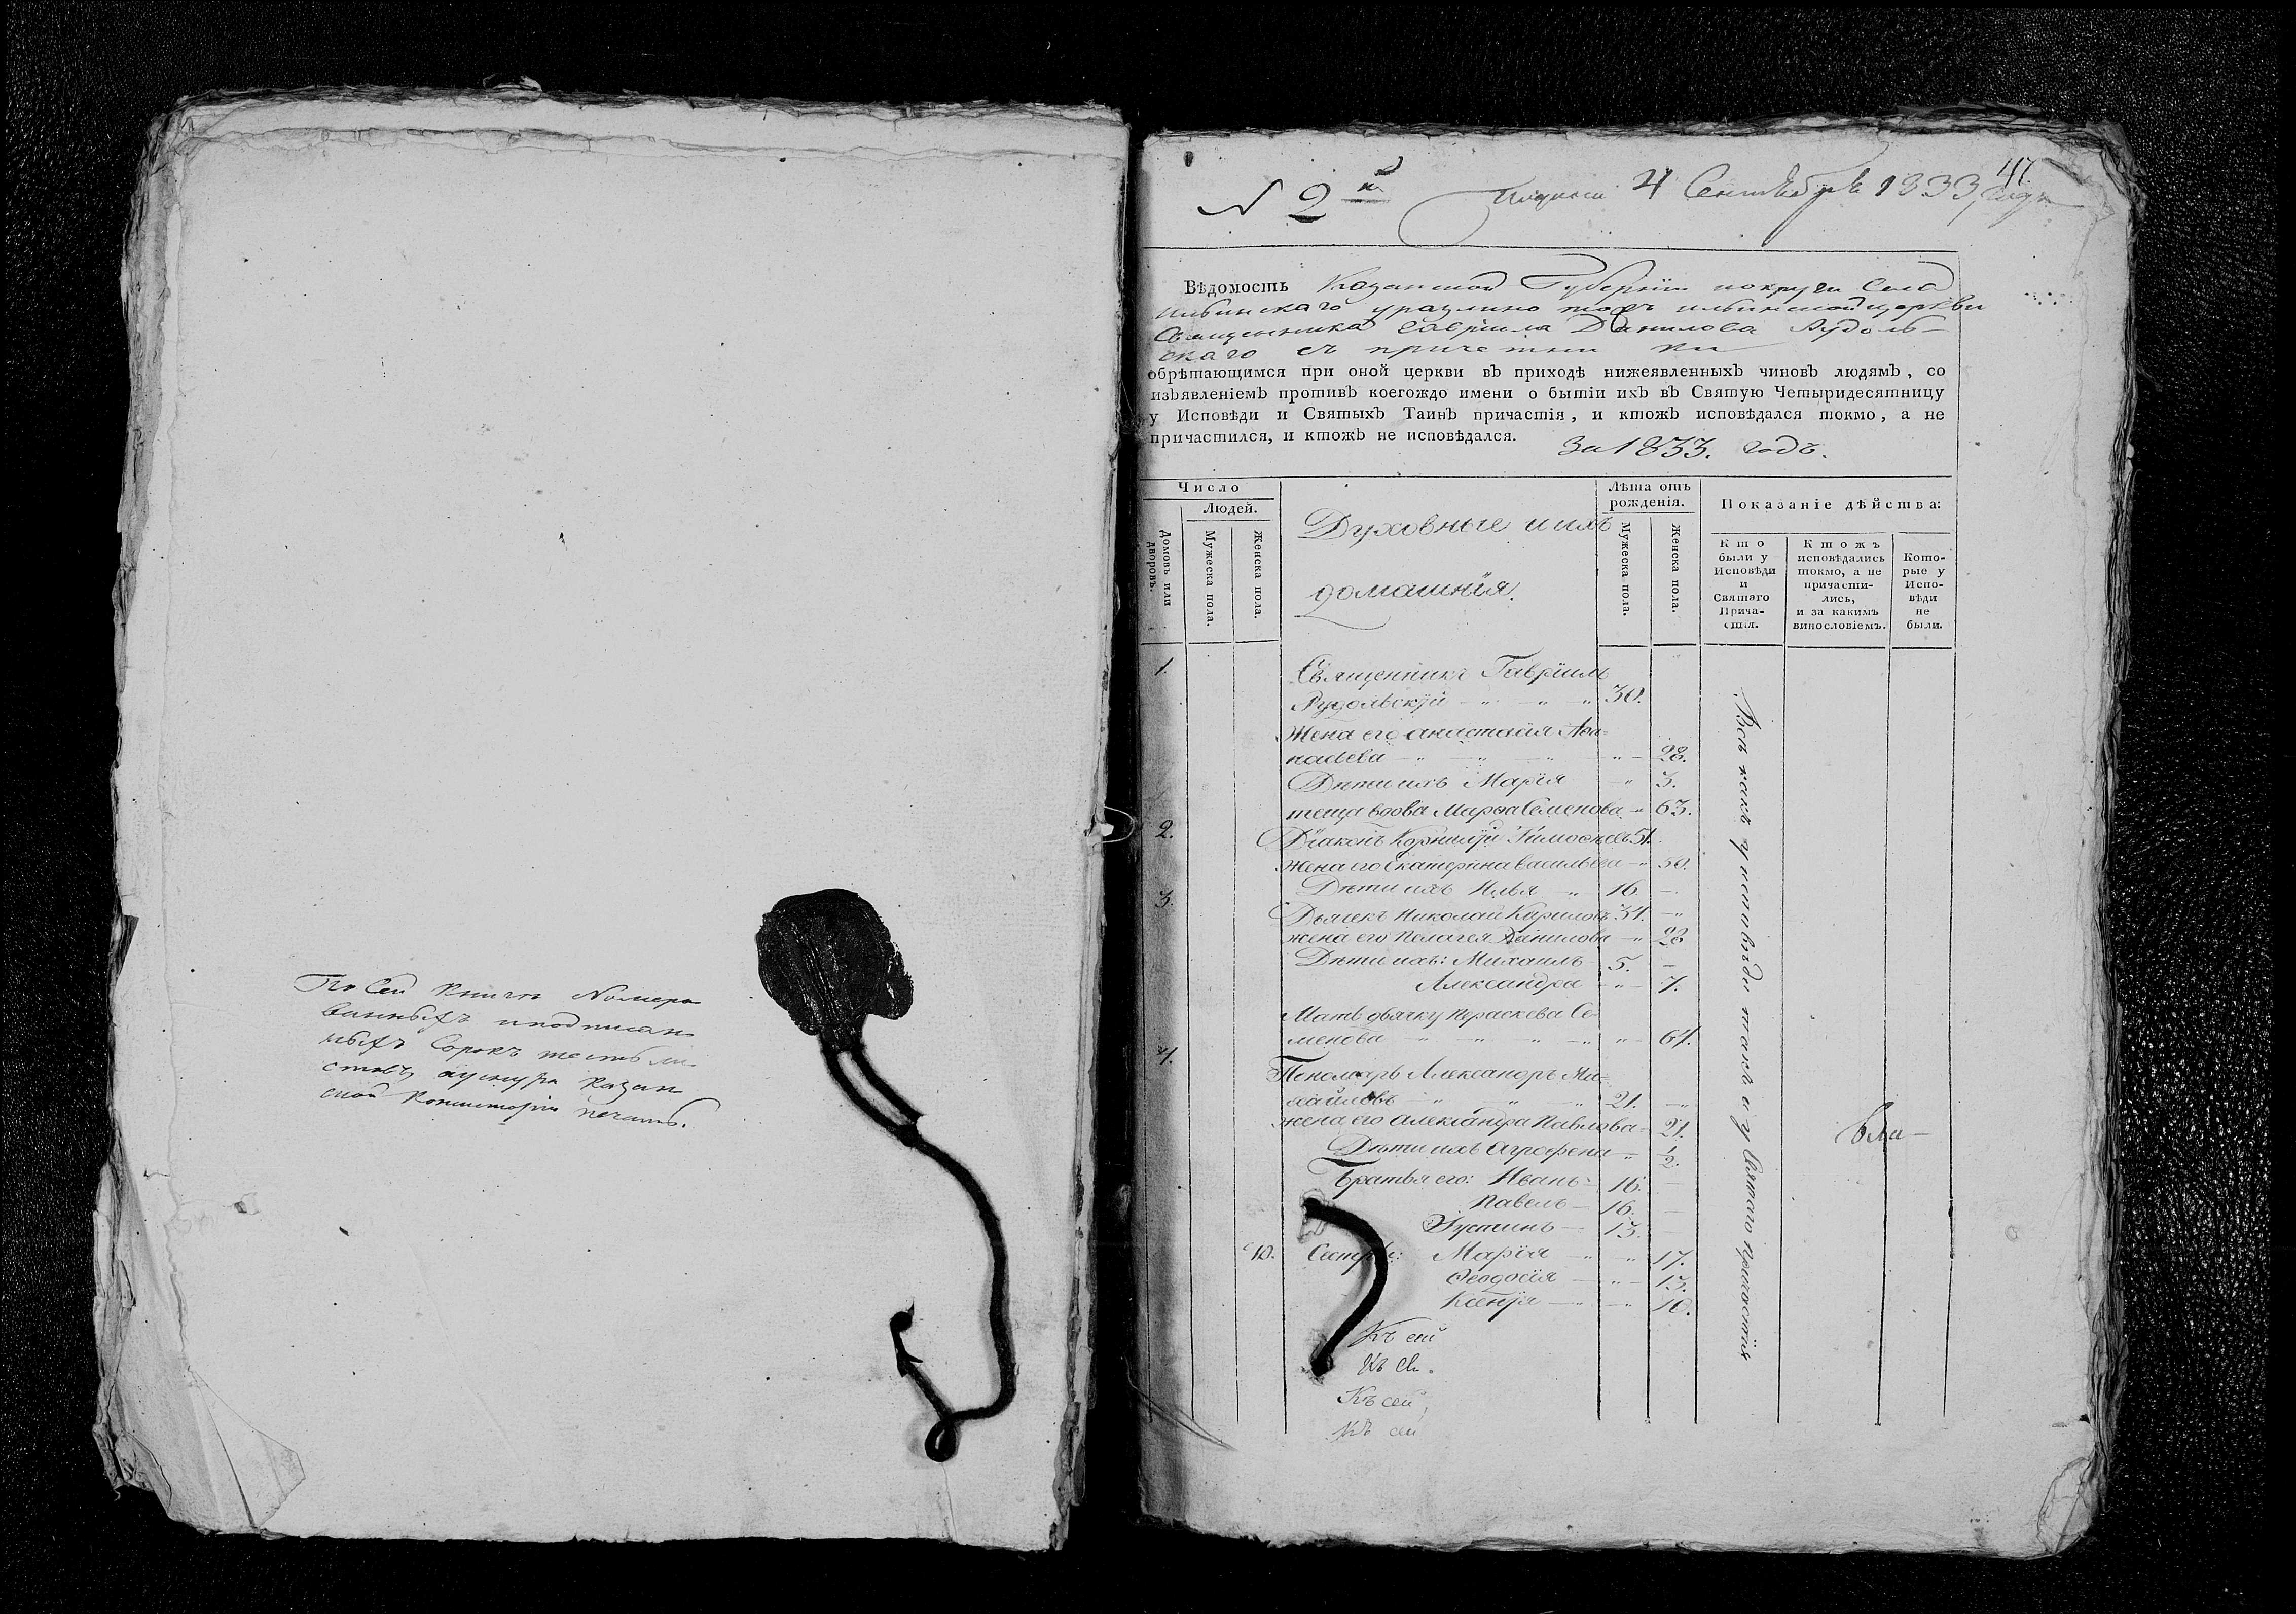 По Сей книге Номеро
ванныхъ и подписан
ныхъ Сорокъ шесть ли
стовъ
Консисторіи печать.
N 2й
4 Сентября 1833 года
47
Вѣдомость Казанской Губерніи округи Села
Ильинскаго тожъ ильинской церкви
Священника Гавріила Данилова Рудоль-
скаго съ причетники
обрѣтающимся при оной церкви въ приходѣ нижеявленныхъ чиновъ людямъ, со
изъявленіемъ противъ коегождо имени о бытіи ихъ въ Святую Четыридесятницу
у Исповѣди и Святыхъ Таинъ причастія, и ктожъ исповѣдался токмо, а не
причастился, и ктожъ не исповѣдался.
За 1833. годъ.
Число
Людей.
Домовъ или дворовъ.
Мужеска пола.
Женска пола.
Духовные и ихъ
домашнія.
Лѣта отъ
рожденія.
Мужеска пола.
Женска пола.
Показаніе дѣйства:
Кто
были у
Исповѣди
и
Святаго
Прича-
стія.
Ктожъ
исповѣдались
токмо, а не
причасти-
лись,
и за какимъ
винословіемъ.
Кото-
рые у
Испо-
вѣди
не
были.
1. Священникъ Гавріилъ
Рудольскій 30.
Жена его анастасія Ана-
ньева 28.
Дѣти ихъ Марія 3.
теща вдова Марья Семенова 63.
2. Діаконъ Корнилій Тимофеевъ 51.
Жена его Екатерина Васильева 50.
Дѣти ихъ Илья 16
3. Дьячекъ Николай Кириловъ 31.
жена его Пелагея Данилова 28
Дѣти ихъ: Михаилъ 5.
Александра 7.
Мать дьячку Параскева Се-
менова 61.
4. Пономарь Александръ Ми-
хайловъ 21.
жена его Александра Павлова 21.
Дѣти ихъ Агрофена 1/2.
Братья его: Иванъ 16.
Павелъ 16.
Іустинъ 13.
10. Сестры: Марія 17.
Феодосія 13.
Ксенія 10.
Всѣ какъ у исповѣди такъ и у Святаго причастія
Къ сей
Къ
Къ сей
Къ сей